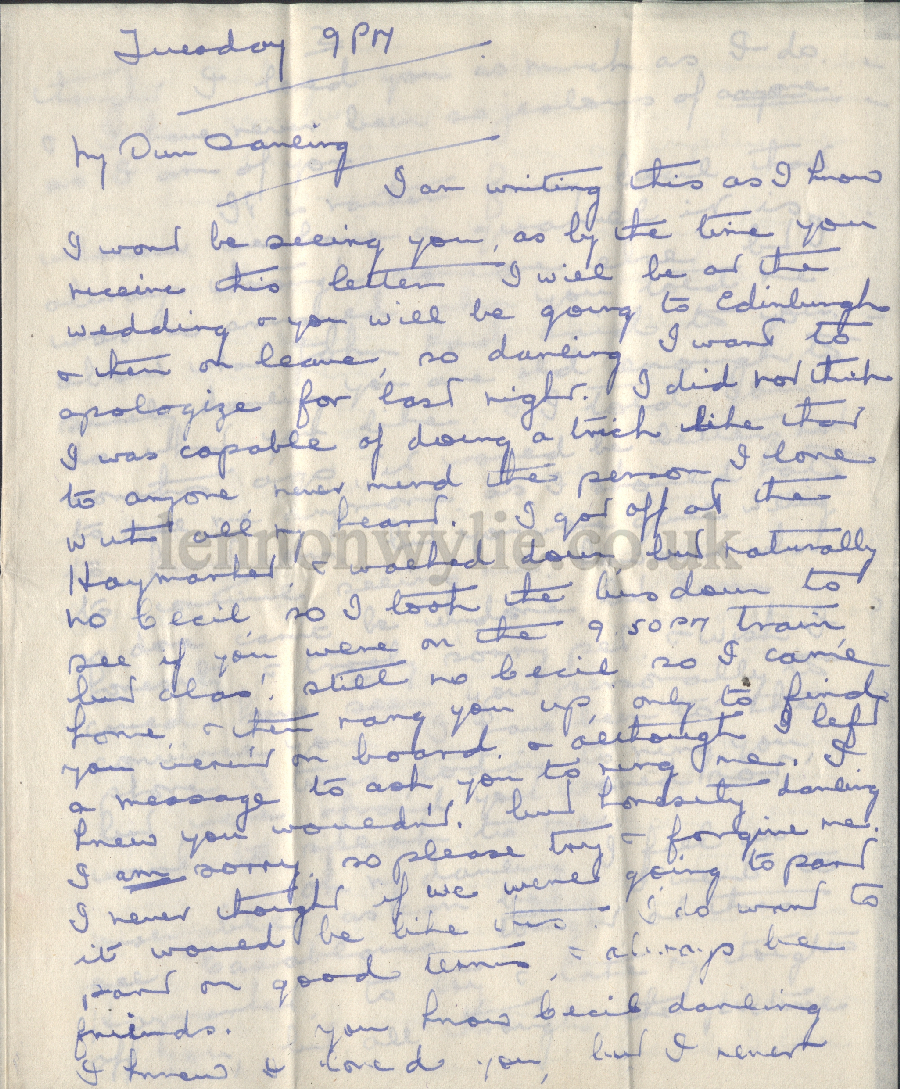 Tuesday 9PM
My Own Darling
I am writing this as I know
I wont be seeing you, as by the time you
receive this letter I will be at the
wedding & you will be going to Edinburgh
& then on leave, so darling I want to
apologize for last night. I did not think
I was capable of doing a trick like that
to anyone never mind the person I love
with all my heart. I got off at the
Haymarket, & walked down but naturally
no Cecil so I took the bus down to
see if you were on the 9.50PM train,
but alas! still no Cecil so I came
home, & then rang you up, only to find
you weren't on board. & although I left
a message to ask you to ring me. I
knew you wouldn't. but honestly darling
I am sorry, so please try & forgive me.
I never thought if we were going to part
it would be like this. I do want to
part on good terms, & always be
friends. you know Cecil darling
I knew I loved you, but I never
lennonwylie.co.uk